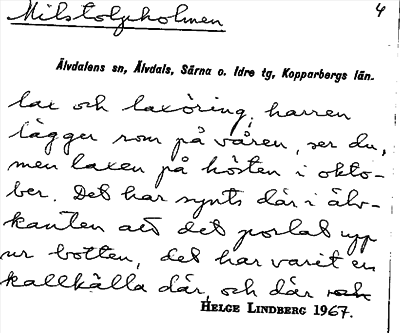 Milstolpeholmen 4
Älvdalens sn, Älvdals, Särna o. Idre tg, Kopparbergs län.
lax och laxöring, harren
lägger rom på våren, ser du,
men laxen på hösten i okto-
ber. Det har synts där i älv-
kanten att det porlat upp
ur botten, det har varit en
kallkälla där, och där
HELGE LINDBERG 1967.